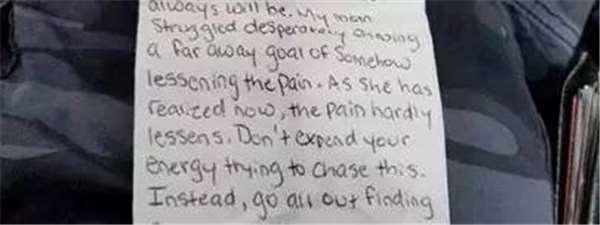 always will be. My mom
struggled desperately chasing
a far away goal of somehow
lessening the pain. As she has
realized now, the pain hardly
lessens. Don't expend your
energy trying to chase this.
Instead, go all out finding